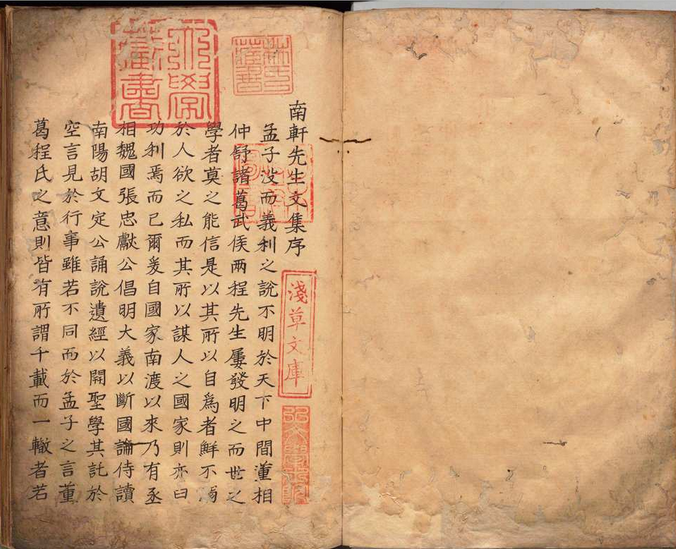 林氏藏書
南軒先生文集序
淺草文庫
孟子没而義利之說不明於天下中間董相
仲舒諸葛武侯兩程先生屢發明之而世之
學者莫之能信是以其所以自爲者鮮不溺
於人欲之私而其所以謀人之國家則亦曰
功利焉而已爾爰自國家南渡以來乃有丞
相魏國張忠獻公倡明大義以斷國論侍讀
南陽胡文定公誦說遺經以開聖學其託於
空言見於行事雖若不同而於孟子之言董
葛程氏之意則皆有所謂千載而一轍者若